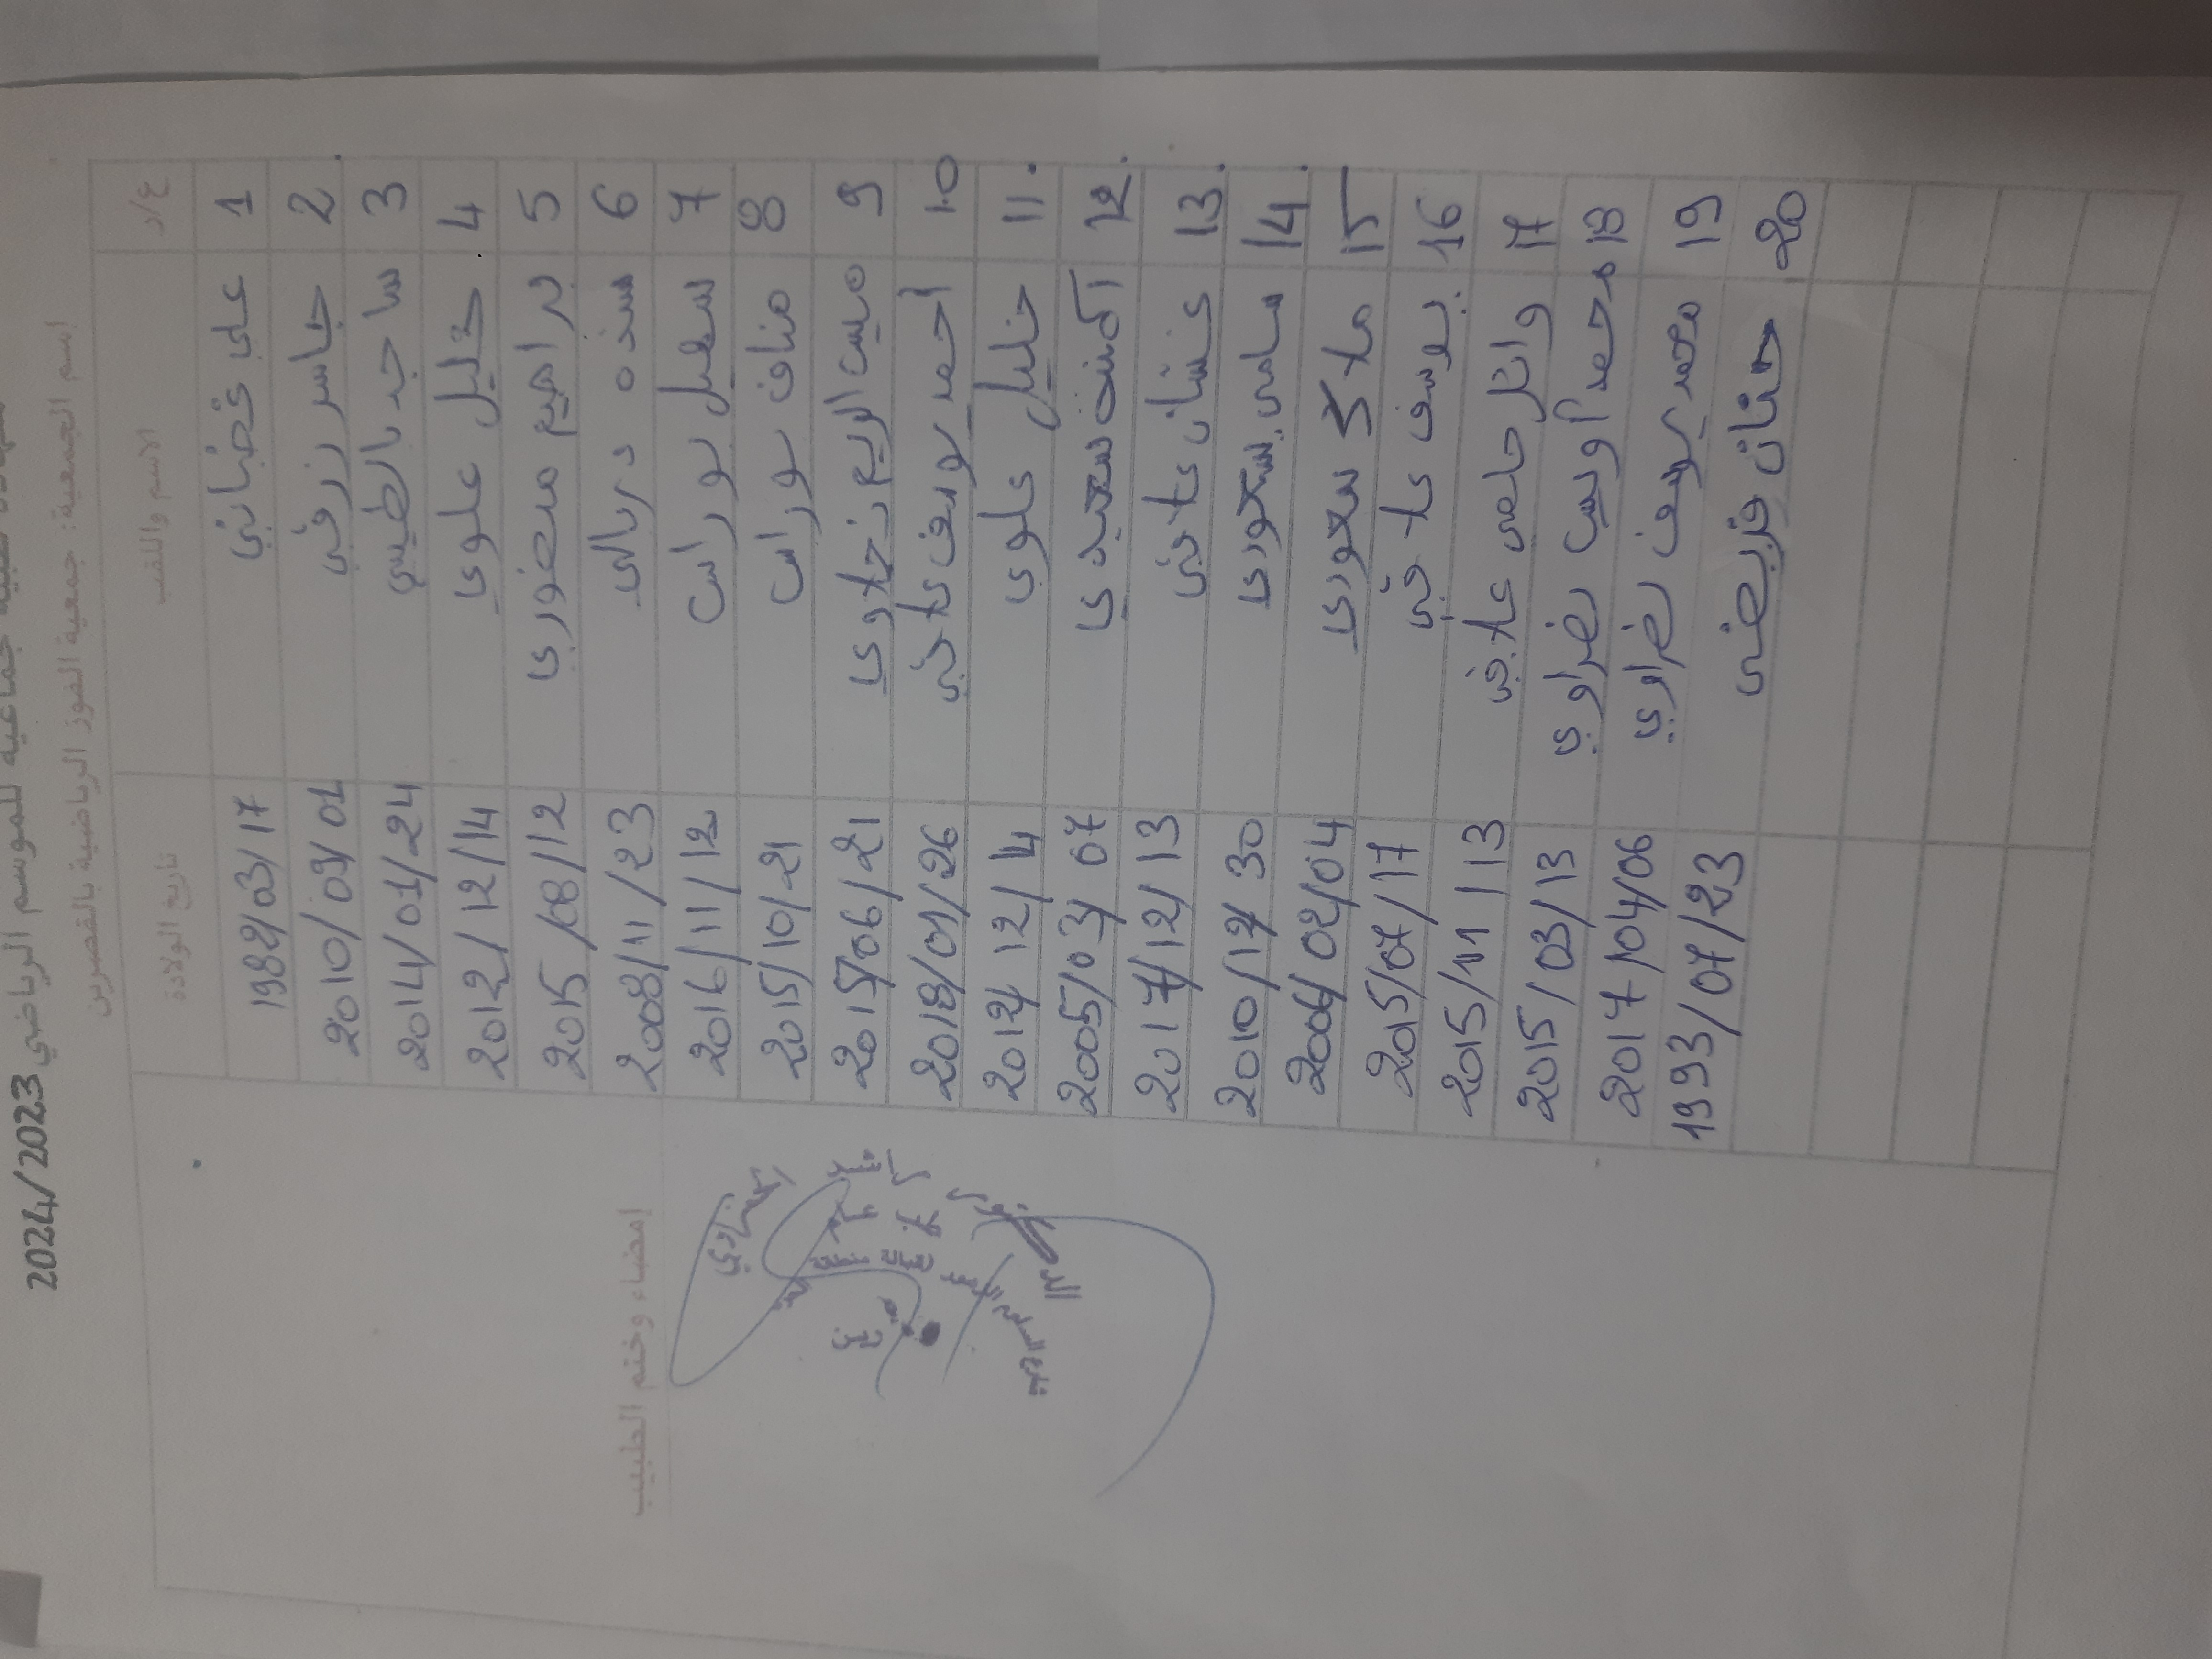 شهادة طبية جماعية للموسم الرياضي 2024/2023
إسم الجمعية: جمعية الفوز الرياضية بالقصرين
ع/د الاسم واللقب تاريخ الولادة
1 علي غضباني 1982/03/17
2 جاسر رزقي 2010/09/01
3 ساجد بالطيبي 2014/01/24
4 خليل علوي 2012/12/14
5 براهيم منصوري 2015/08/12
6 سنده دربالي 2008/11/23
7 سهيل بوراس 2016/11/12
8 مناف بوراس 2015/10/21
9 ميس الريم 2015/06/21
10 أحمد يوسف 2018/01/26
11 خليل علوي 2012/12/4
12 آمنة سعيدي 2005/03/07
13 2017/12/13
14 سلمى 2010/12/30
15 2006/02/04
16 يوسف 2015/07/17
17 وائل 2015/11/13
18 محمد أويس نصراوي 2015/03/13
19 محمد يوسف نصراوي 2017/04/06
20 حنان قريضي 1993/07/23
إمضاء وختم الطبيب